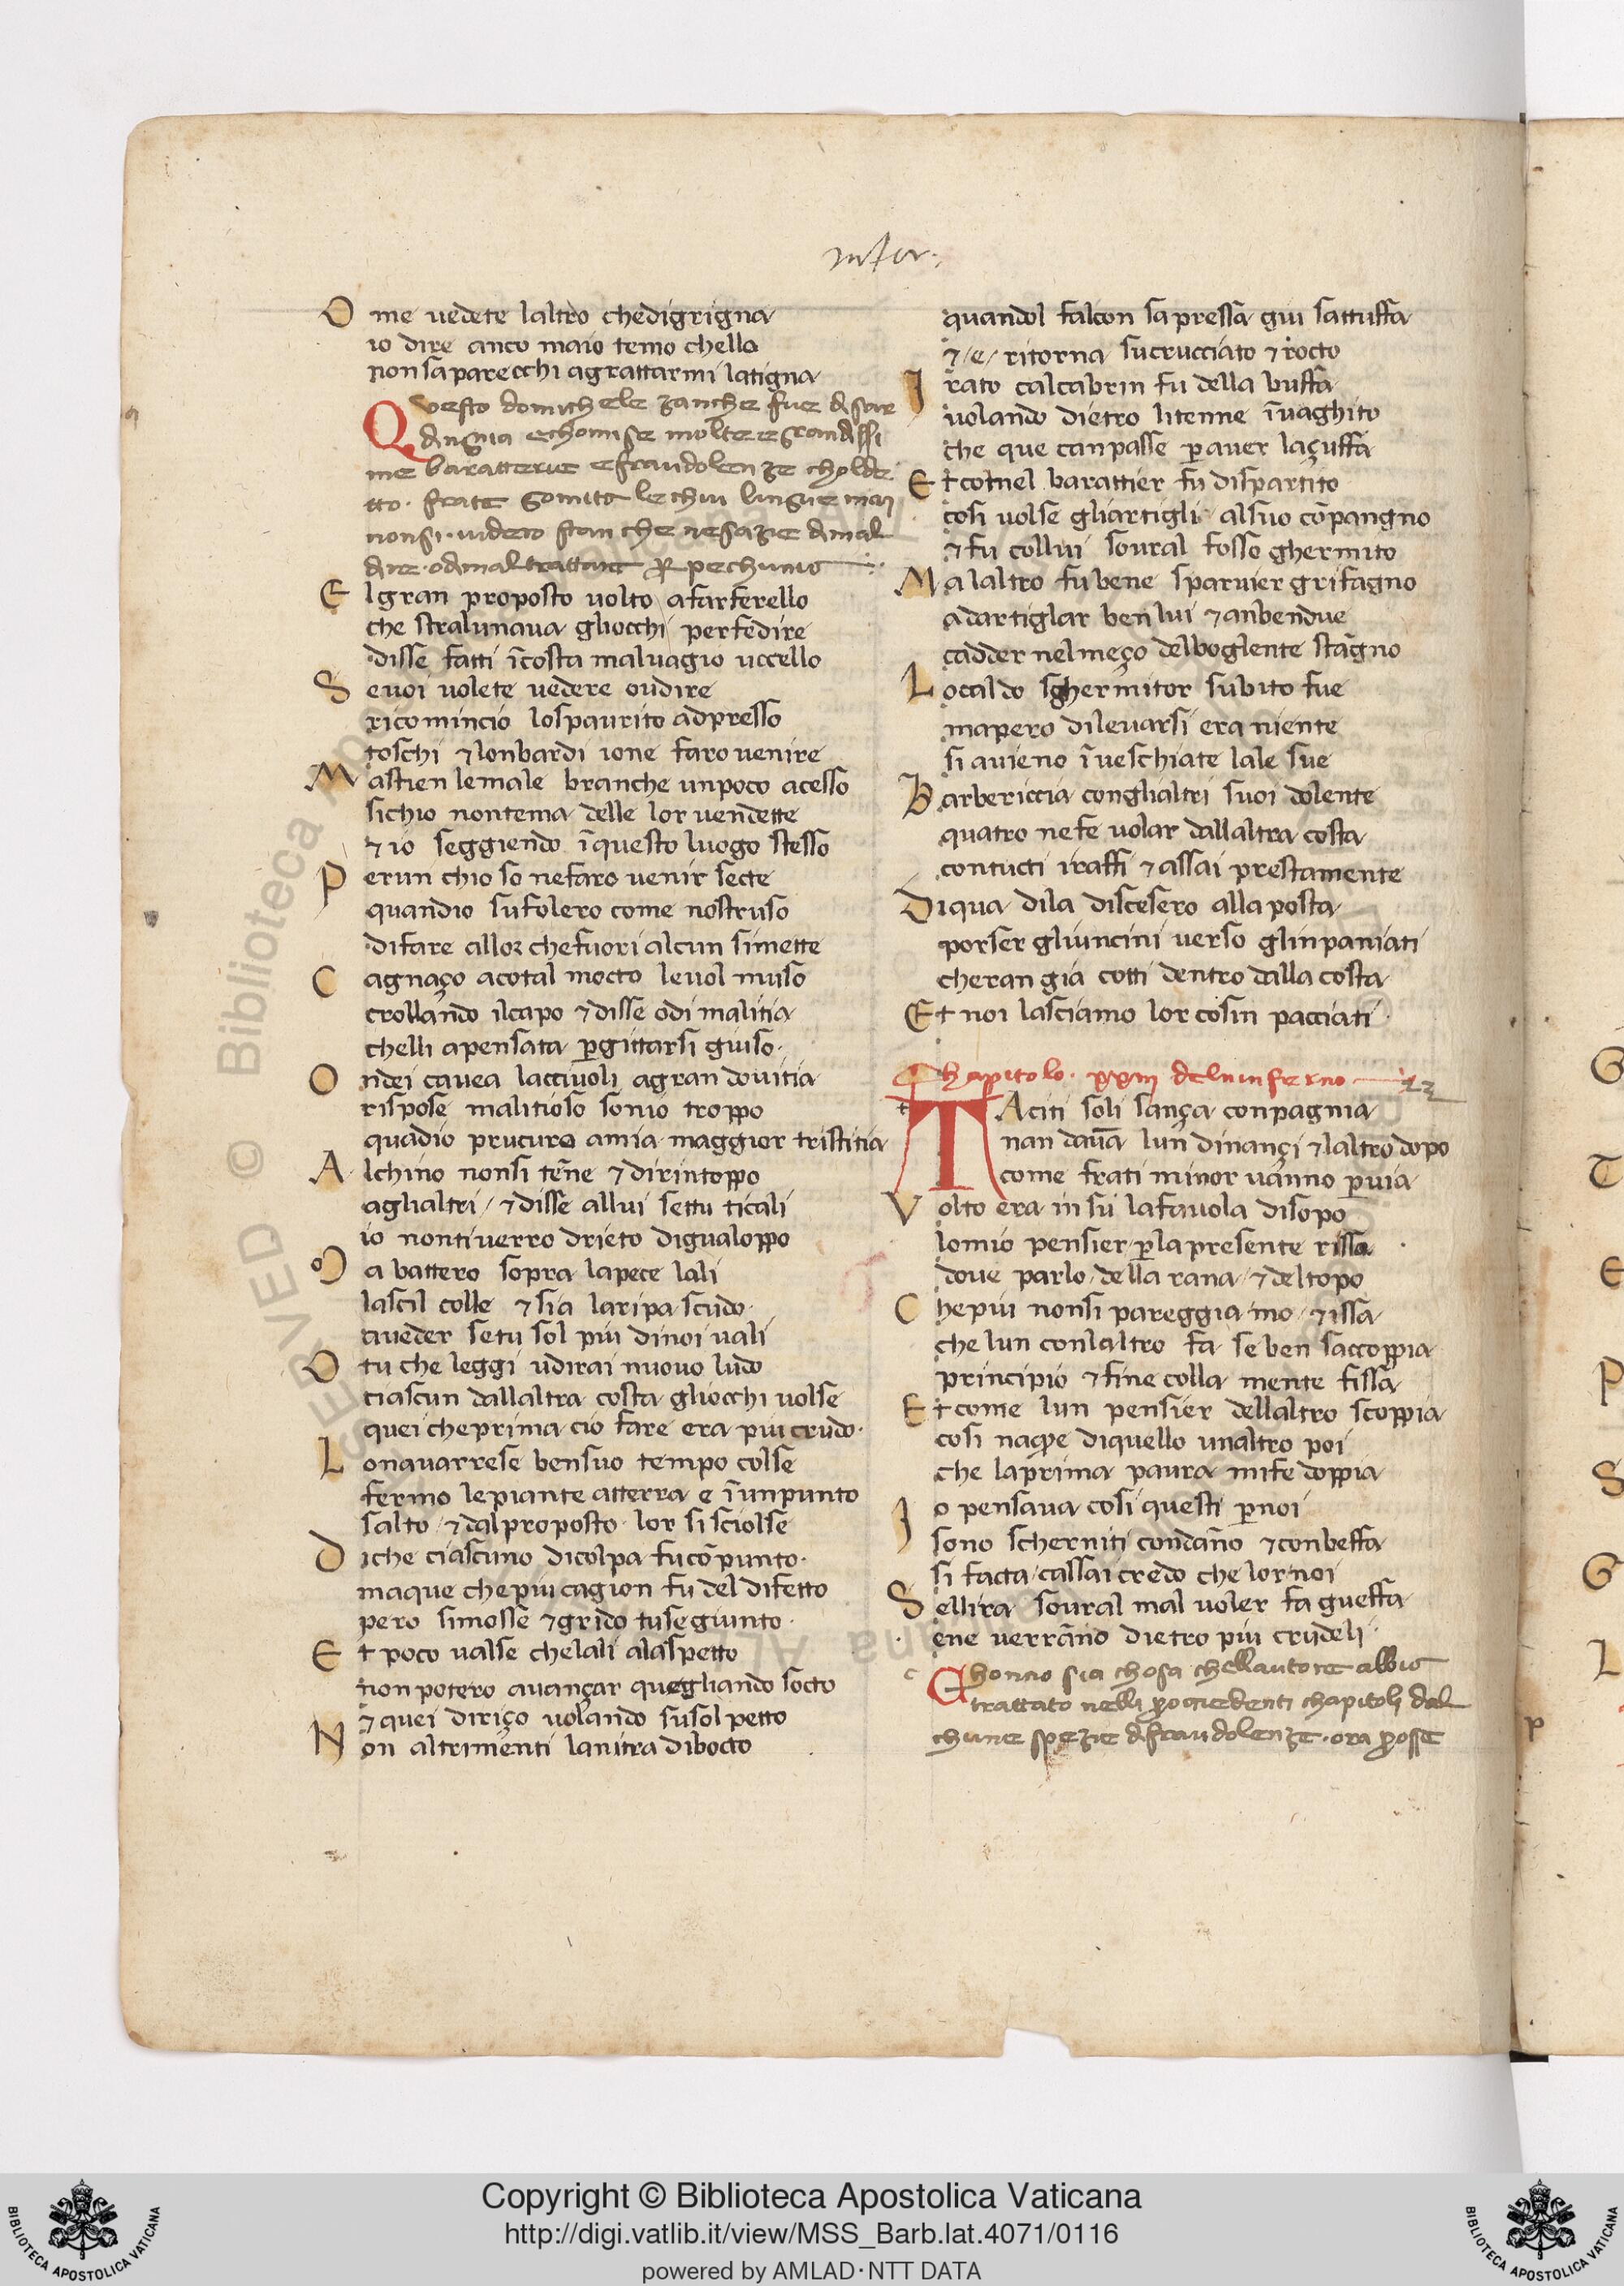 infer.
O me vedete laltro chedigrigna
io dire anco maio temo chello
non saparecchi agrattarmi latigna
Questo domichele zanche fue di sar
dingnia echomise molte egrandissi
me baratterie efraudolenze chol de
tto. frate gomita le chui lingue mai
nonsi. videro stanche ne sazie dimal
dire. o dimal trattare per pechunia
E l gran proposto volto afarferello
che stralunava gliocchi perfedire
disse fatti īcosta malvagio uccello
S evoi volete vedere oudire
ricomincio lospaurito adpresso
toschi ⁊ lonbardi ione faro venire
M astien lemale branche unpoco acesso
sichio nontema delle lor vendette
⁊ io seggiendo ī questo luogo stesso
P erun chio so nefaro venir secte
quandio sufolero come nostruso
difare allor chefuori alcun simette
C agnaço acotal mocto levol muso
crollando ilcapo ⁊ disse odi malitia
chelli apensata pgittarsi giuso.
O ndei cavea lacciuoli agran dovitia
rispose malitioso sonio troppo
quādio procuro amia maggior tristitia
A lchino nonsi tēne ⁊ dirintoppo
aglialtri / ⁊ disse allui settu ticali
io nontiverro drieto digualoppo
M a battero sopra lapece lali
lascil colle ⁊ sia laripa scudo.
aveder setu sol piu dinoi vali
O tu che leggi udirai nuovo ludo
ciascun dallaltra costa gliocchi volse
quei cheprima cio fare era piu crudo.
L onavarrese bensuo tempo colse
fermo lepiante atterra e īun punto
salto / ⁊ dalproposto lor si sciolse
D iche ciascuno dicolpa fu cōpunto.
maque che piu cagion fu del difetto
pero simosse ⁊ grido tusegiunto.
E t poco valse chelali alaspetto
non potero avançar quegliando socto
⁊ quei diriço volando susol petto
N on altrimenti lanitra dibocto
quandol falcon sapressa giu sattuffa
⁊ /e/ ritorna sucrucciato ⁊ rocto
I rato calcabrin fu della buffa
volando dietro litenne īvaghito
che que canpasse p aver laçuffa
E t comel barattier fu dispartito
cosi volse gliartigli alsuo cōpangno
⁊ fu collui sovral fosso ghermito
M a laltro fu bene sparvier grifagno
adartiglar ben lui ⁊ anbendue
cadder nelmeço delboglente stāgno
L ocaldo sghermitor subito fue
mapero dilevarsi era niente
si avieno īveschiate lale sue
B arbericcia conglialtri suoi dolente
quatro nefe volar dallaltra costa
contucti iraffi ⁊ assai prestamente
D iqua dila discesero alla posta
porser gliuncini verso glinpaniati
cheran gia cotti dentro dalla costa
E t noi lasciamo lor cosin pacciati.
Chapitolo. xxiii delinferno 23
T Aciti soli sança conpagnia
nan davā lun dinançi ⁊ laltro dopo
come frati minor vanno pvia
V olto era in su lafavola disopo
lomio pensier / pla presente rissa
dove parlo / della rana / ⁊ deltopo
C hepiu nonsi pareggia mo / ⁊ issa
che lun conlaltro fa se ben saccoppia
principio ⁊ fine colla mente fissa
E t come lun pensier dellaltro scoppia
cosi nacque diquello unaltro poi
che laprima paura mife doppia
I o pensava cosi questi pnoi
sono scherniti condāno ⁊ conbeffa
si facta / cassai credo che lor noi
S ellira sovral mal voler fa gueffa
ene verrāno dietro piu crudeli.
Chonno sia chosa chellautore abbia
trattato nelli precedenti chapitoli dal
chune spezie di fraudolenze. ora
Copyright © Biblioteca Apostolica Vaticana
http://digi.vatlib.it/view/MSS_Barb.lat.4071/0116
powered by AMLAD·NTT DATA